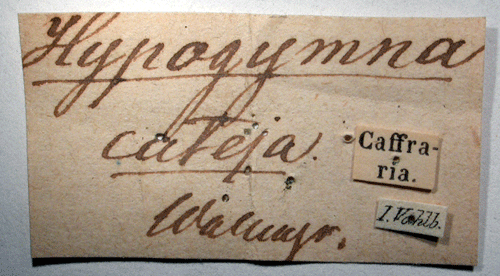 Hypogymna
cateja.
Wallengr.
Caffra-
ria.
J. Vahlb.